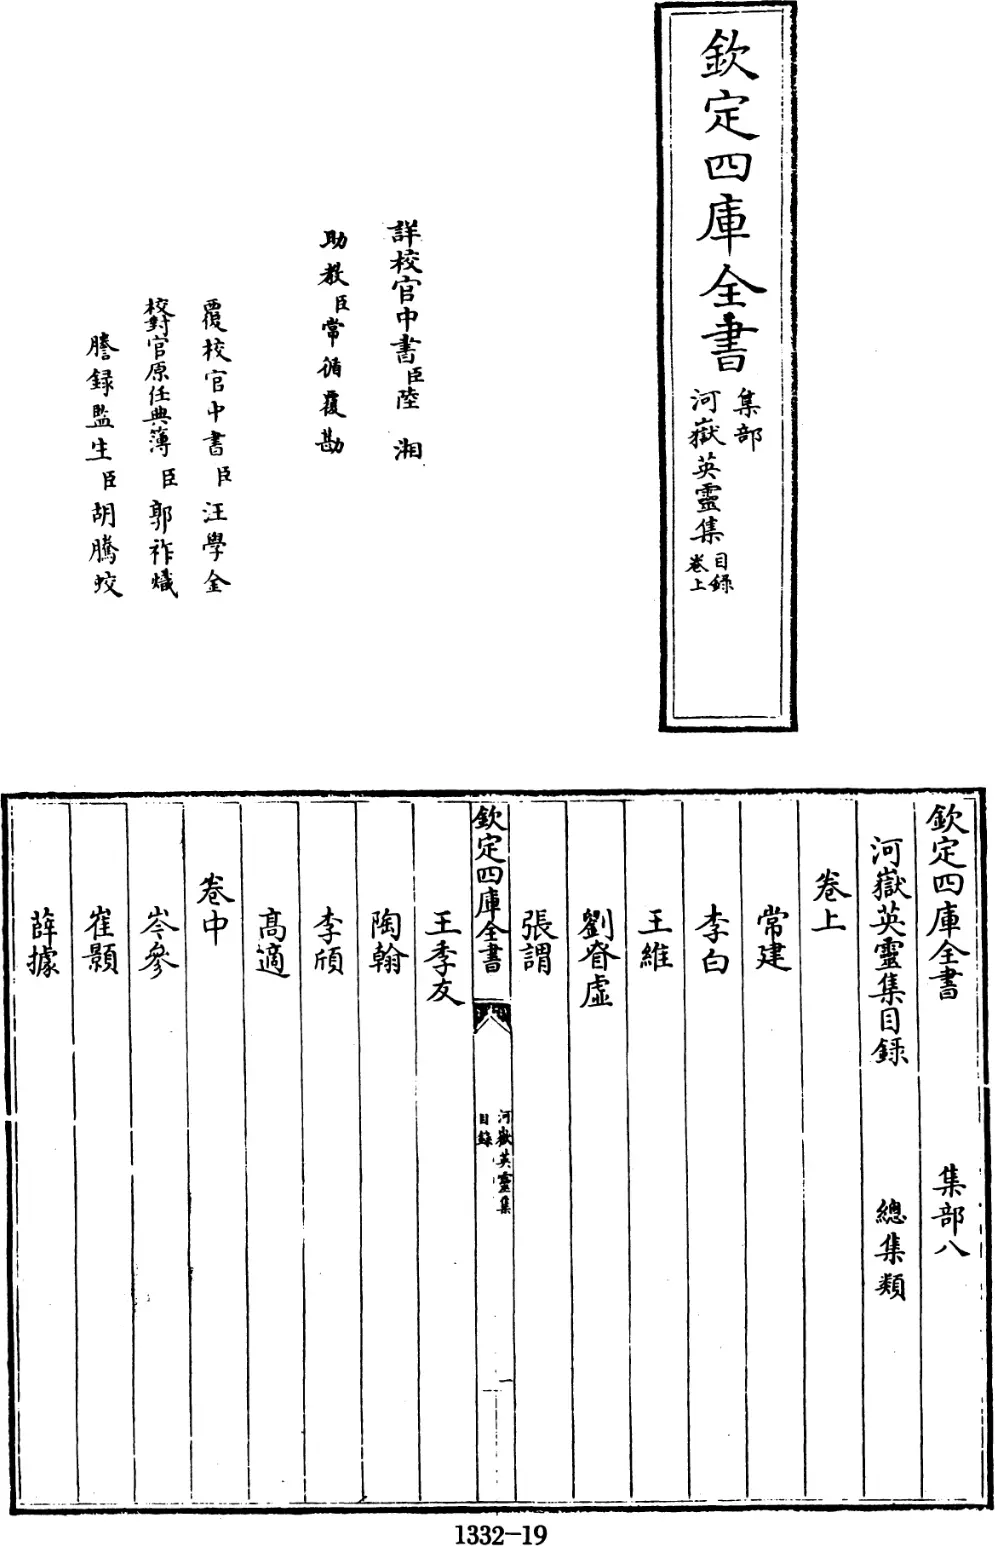 欽定四庫全書
集部
河嶽英靈集
目錄
卷上
詳校官中書臣陸湘
助教臣常循覆勘
覆校官中書臣汪學金
校對官原任典簿臣郭祚熾
謄錄監生臣胡騰蛟
欽定四庫全書
集部八
河嶽英靈集目錄
總集類
卷上
常建
李白
王維
劉眘虛
張謂
欽定四庫全書
河嶽英靈集
目錄
一
王季友
陶翰
李頎
高適
卷中
岑參
崔顥
薛據
1332-19